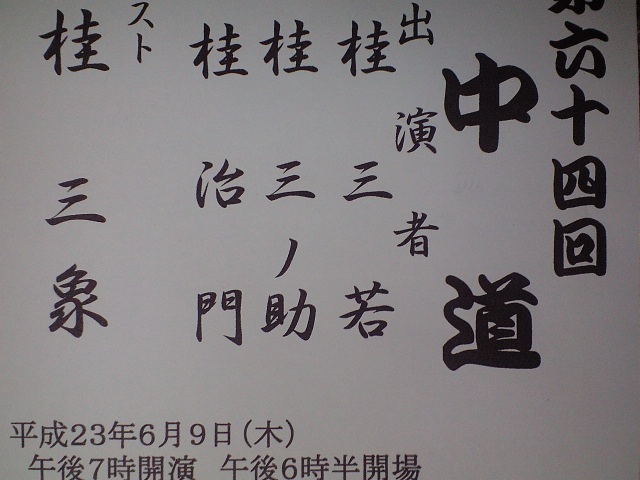 第六十四回
中道
出演者
桂三若
桂三ノ助
桂治門
スト
桂三象
平成23年6月9日(木)
午後7時開演 午後6時半開場